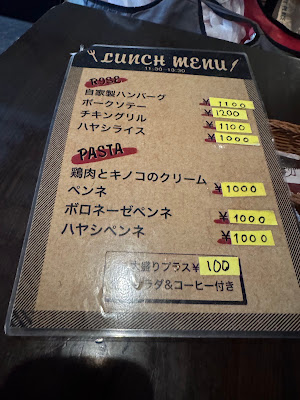 LUNCH MENU
11:30-13:30
RICE
自家製ハンバーグ ¥1100
ポークソテー ¥1200
チキングリル ¥1100
ハヤシライス ¥1000
PASTA
鶏肉とキノコのクリーム
ペンネ ¥1000
ボロネーゼペンネ ¥1000
ハヤシペンネ ¥1000
大盛りプラス¥100
サラダ&コーヒー付き